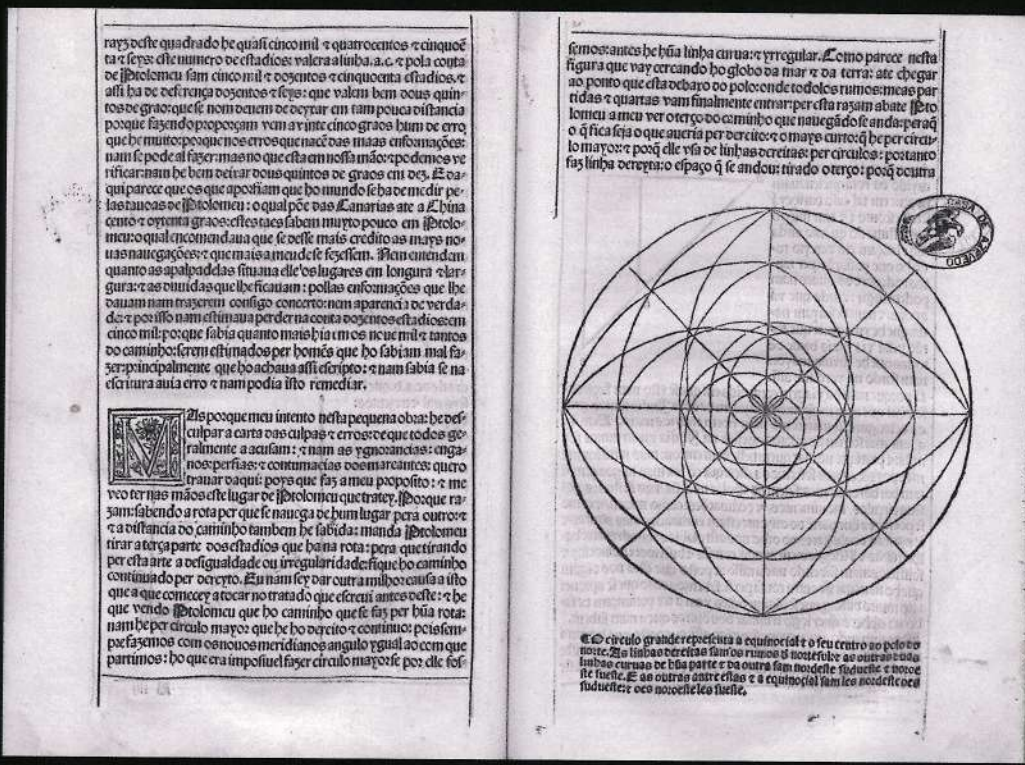 rayz deste quadrado he quasi cinco mil & quatrocentos & cinquoẽ
ta & seys: este numero de estadios: valera a linha. a.c. & pola conta
de Ptolomeu sam cinco mil & dozentos & cinquoenta estadios. &
assi ha de deferença dozentos & seys: que valem bem dous quin-
tos de grao: que se nom deuem de deytar em tam pouca distancia
porque fazendo proporçam vem a vinte cinco graos hum de erro
que he muito: porque nos erros que nacẽ das maas enformações:
nam se pode al fazer: mas no que esta em nossa mão: & podemos ve
rificar: nam he bem deixar dous quintos de graos em dez. E da-
qui parece que os que aporfiam que ho mundo se ha de medir pe-
las tauoas de Ptolomeu: o qual põe das Canarias ate a China
cento & oytenta graos: estes taes sabem muyto pouco em Ptolo-
meu: o qual encomendaua que se desse mais credito as mays no-
uas nauegações: & que mais a meude se fezessem. Nem entendem
quanto as apalpadelas situaua elle os lugares em longura & lar-
gura: & as duuidas que lhe ficauam: pollas enformações que lhe
dauam nam trazerem consigo concerto: nem aparencia de verda-
de: & por isso nam estimaua perder na conta dozentos estadios: em
cinco mil: porque sabia quanto mais hia em os noue mil & tantos
do caminho: serem estimados per homẽs que ho sabiam mal fa-
zer: principalmente que ho achaua assi escripto: & nam sabia se na
escritura auia erro & nam podia isto remediar.
MAs porque meu intento nesta pequena obra: he des-
culpar a carta das culpas & erros: de que todos ge-
ralmente a acusam: & nam as ygnorancias: enga-
nos: perfias: & contumacias dos mareantes: quero
trauar daqui: poys que faz a meu proposito: & me
veo ter nas mãos este lugar de Ptolomeu que tratey. Porque ra-
zam: sabendo a rota per que se nauega de hum lugar pera outro: &
& a distancia do caminho tambem he sabida: manda Ptolomeu
tirar a terça parte dos estadios que ha na rota: pera que tirando
per esta arte a desigualdade ou irregularidade: fique ho caminho
continuado per dereyto. Eu nam sey dar outra milhor causa a isto
que a que comecey a tocar no tratado que escreui antes deste: & he
que vendo Ptolomeu que ho caminho que se faz per hũa rota:
nam he per circulo mayor que he ho dereito & continuo: pois sem-
pre fazemos com os nouos meridianos angulo ygual ao com que
partimos: ho que era imposiuel fazer circulo mayor se por elle fos-
semos: antes he hũa linha curua: & yrregular. Como parece nesta
figura que vay cercando ho globo da mar & da terra: ate chegar
ao ponto que esta debaxo do polo: onde todolos rumos: meas par
tidas & quartas vam finalmente entrar: per esta razam abate Pto
lomeu a meu ver o terço do caminho que nauegãdo se anda: peraq̃
o q̃ fica seja o que aueria per dereito: & o mays curto: q̃ he per circu-
lo mayor: & porq̃ elle vsa de linhas dereitas: per circulos: portanto
faz linha dereyta: o espaço q̃ se andou: tirado o terço: porq̃ doutra
CASA DE AZEVEDO
¶ O circulo grande representa a equinocial & o seu centro ao polo do
norte. As linhas dereitas sam os rumos d̃ nortesul: & as outras duas
linhas curuas de hũa parte & da outra sam nordeste sudueste & noroe
ste sueste. E as outras antre estas & a equinocial sam les nordeste oes
sudueste: & oes noroeste les sueste.